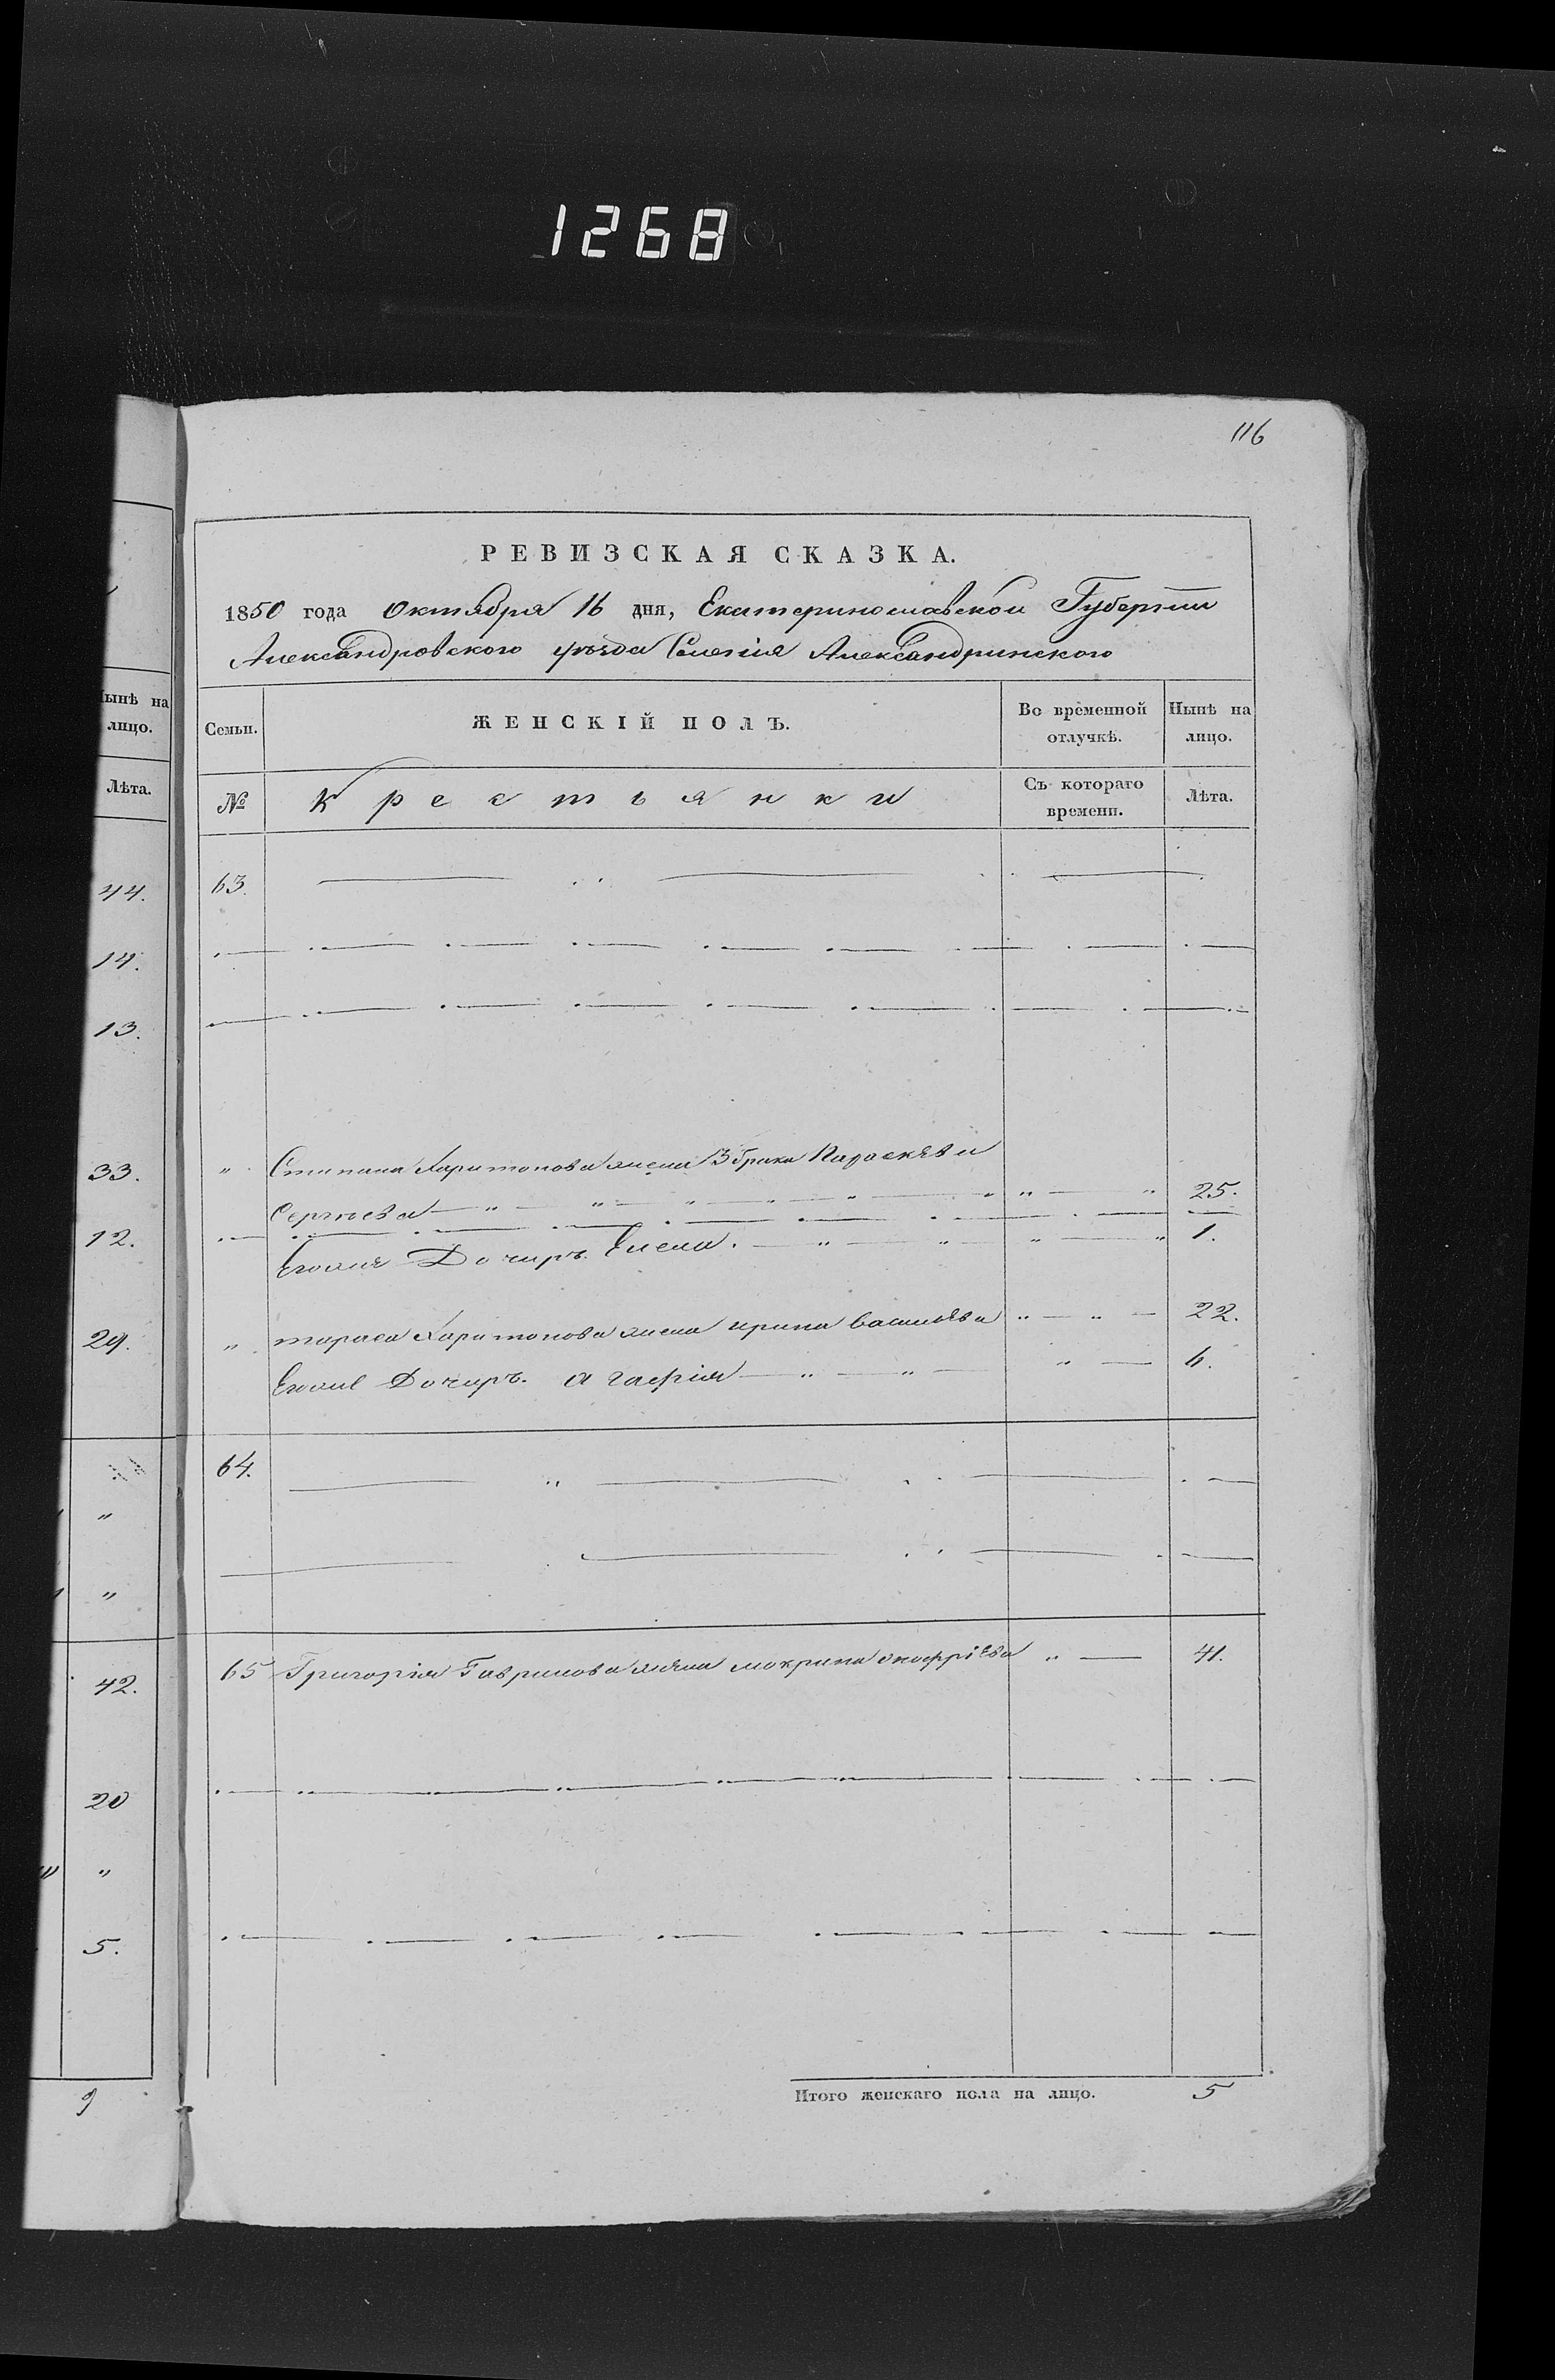 1268
116
РЕВИЗСКАЯ СКАЗКА.
1850 года Октября 16 дня, Екатеринославской Губерніи
Александровского уѣзда Селенія Александринского
Нынѣ на лицо.
Семьи.
ЖЕНСКІЙ ПОЛЪ.
Во временной отлучкѣ.
Нынѣ на лицо.
Лѣта.
№
Крестьянки
Съ котораго времени.
Лѣта.
44.
63.
14.
13.
33.
" Степана Харитонова жена 3 брака Параскева
Сергѣева " " " " " " " 25.
12.
Егоже Дочирь Елена. " " " " 1.
29.
" тараса Харитонова жена ирина василѣва " " 22.
Егоже Дочирь. агафія " " " 6.
64. "
"
"
42.
65 Григорія Гаврилова жена мокрина онофріева " 41.
20
"
5.
9
Итого женскаго пола на лицо. 5